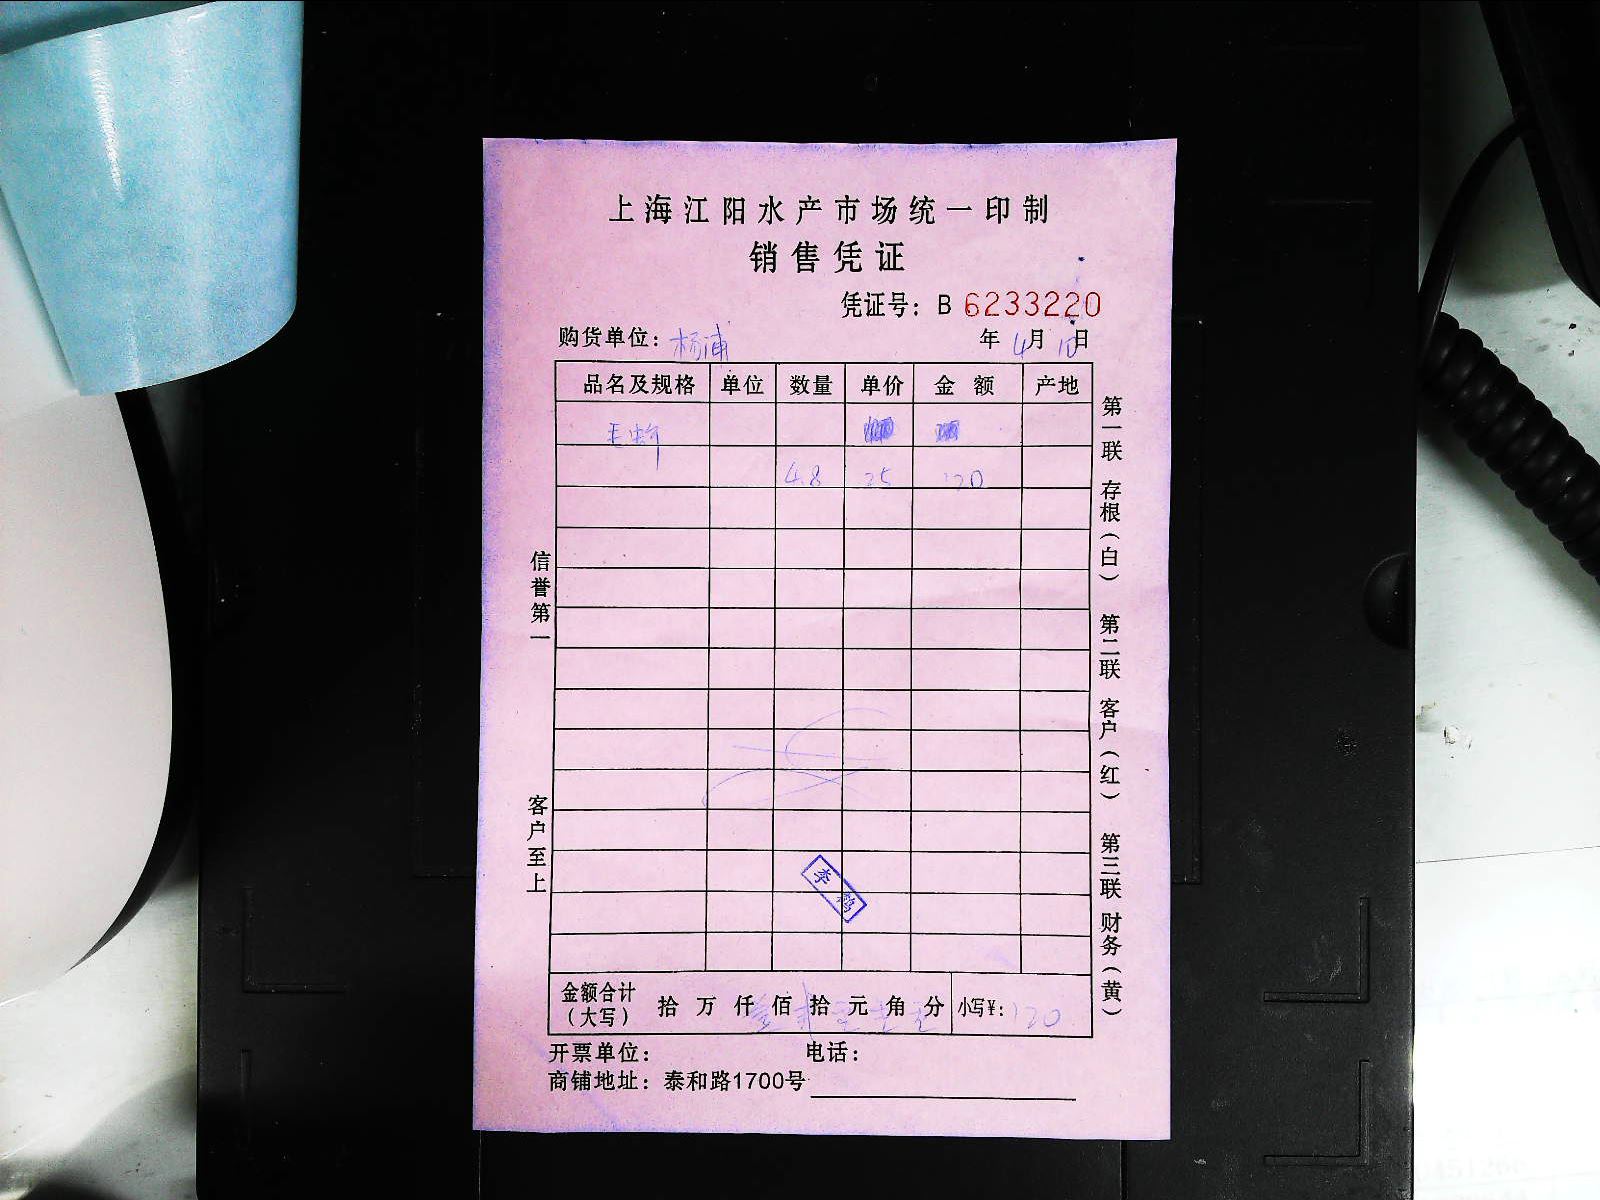 上海江阳水产市场统一印制
销售凭证
凭证号：B 6233220
购货单位：杨浦 年 4月 10日
品名及规格 单位 数量 单价 金额 产地
4.8 25 120
信誉第一
客户至上
第一联 存根（白） 第二联 客户（红） 第三联 财务（黄）
李
金额合计（大写） 拾 万 仟 佰 拾 元 角 分 小写¥：120
开票单位： 电话：
商铺地址：泰和路1700号